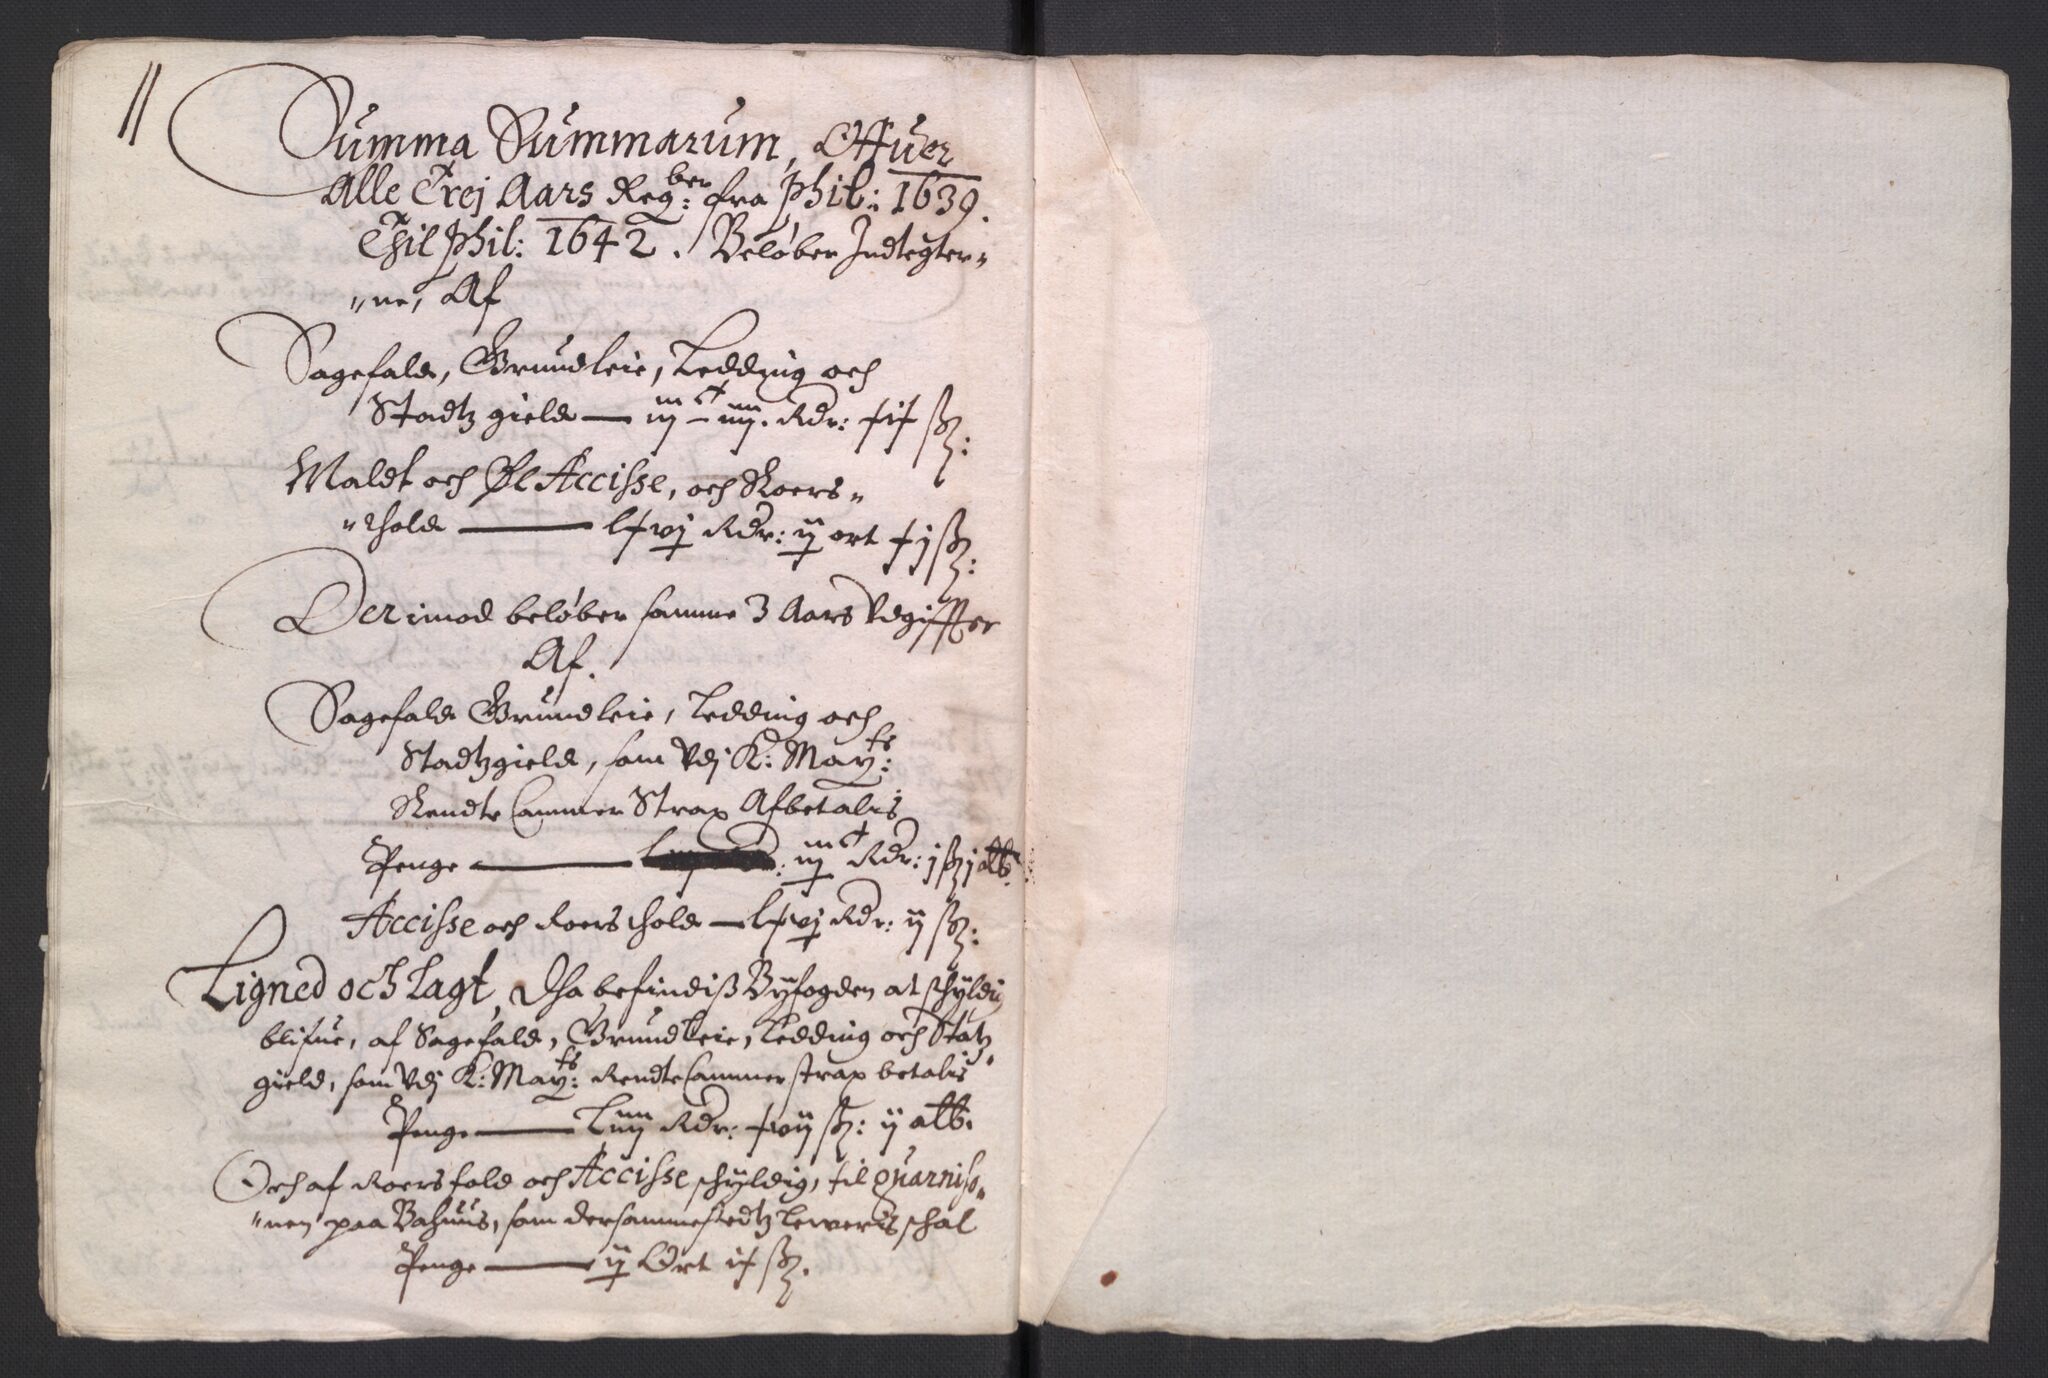 Summa Summarum, Offuer
Alle Trej Aars Regber: fra Phil: 1639.
Thil Phil: 1642. Beløber Indtegter-
-ne, Af
Sagefald, Grundleie, Ledding och
Stadtzgield — iij C — iiij. Rdr: xix ß:
Maldt och Øl Accisse, och Roers-
-thold — lxvj Rdr: ij ort xj ß:
Derimod beløber samme 3 Aars Vdgiffter
Af.
Sagefald Grundleie, Ledding och
Stadtzgield, som Vdj K: Mayts:
Rendte Cammer Strax Afbetalis
Penge — iij C Rdr: j ß j alb.
Accisse och Roersthold — lxvj Rdr: ij ß:
Ligned och Lagt, Dha befindiß Byfogden at schyldig
blifue, af Sagefald, Grundleie, Ledding och Statz
gield, som Vdj K: Mayts: Rendte Cammer strax betalis
Penge — Liiij Rdr: xvij ß: ij alb.
Och af Roershold och Accisse schyldig, til Quarniso-
-nen paa Bahuus, som dersammestedtz Leweris schal
Penge — ij Ort ix ß.